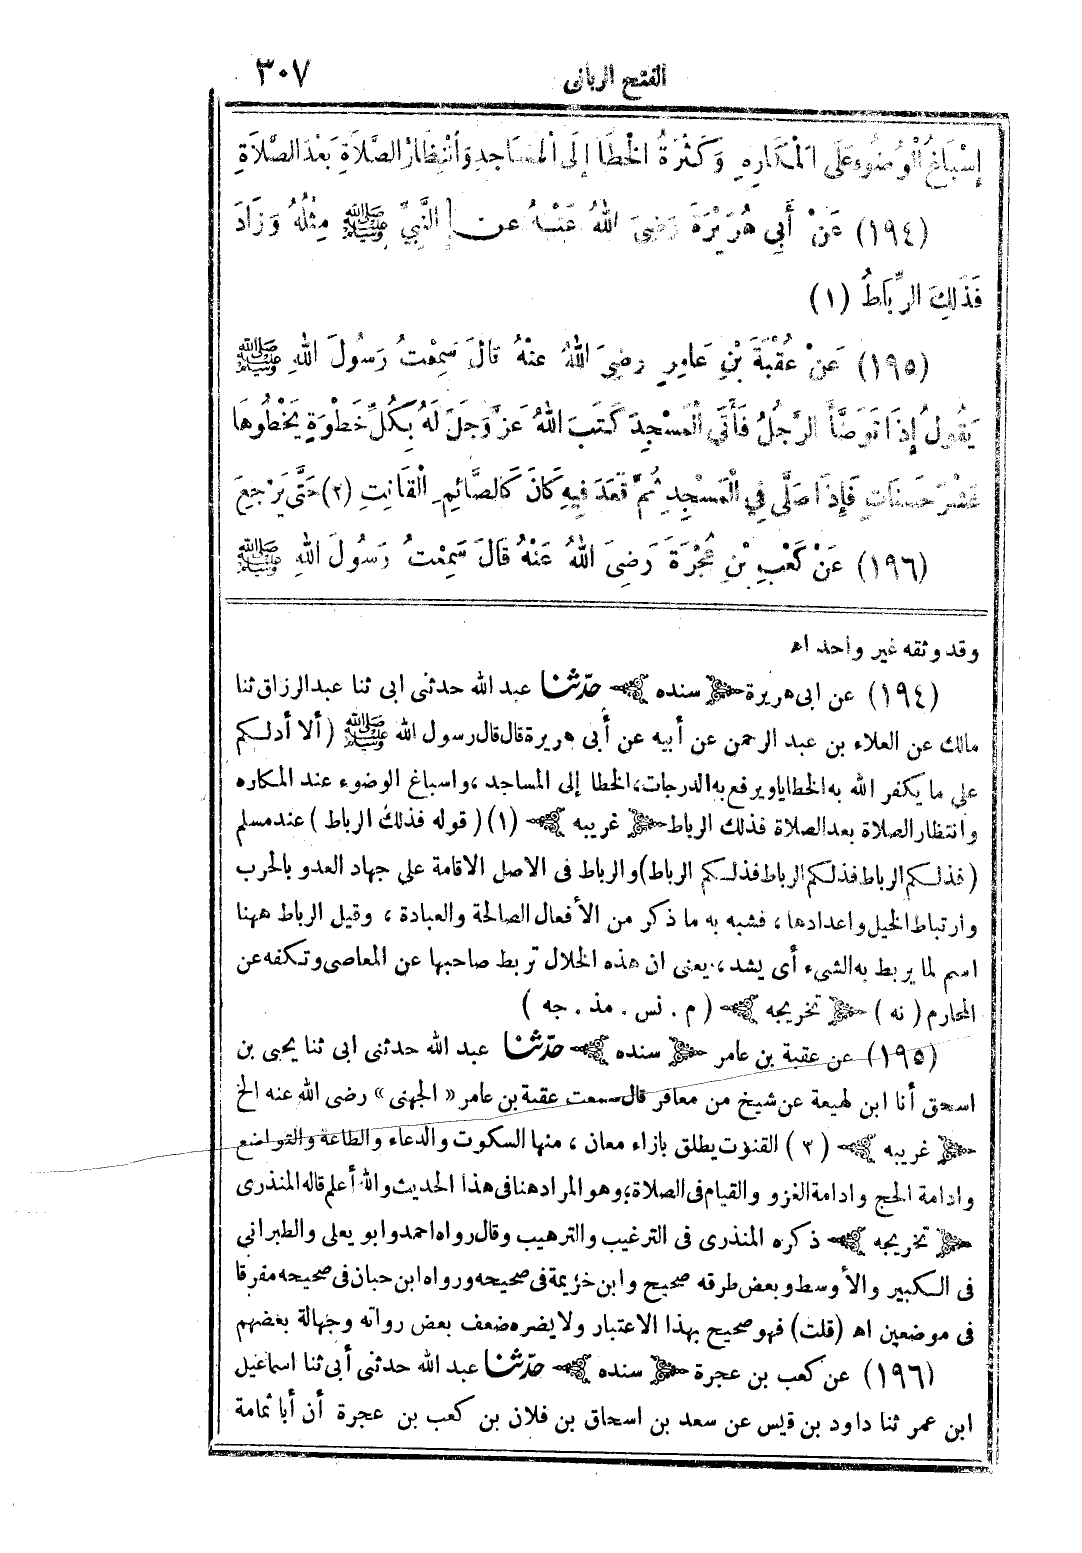 الفتح الربانى ٣٠٧
إِسْبَاغُ الْوُضُوءِ عَلَى الْمَكَارِهِ وَكَثْرَةُ الْخُطَا إِلَى الْمَسَاجِدِ وَانْتِظَارُ الصَّلَاةِ بَعْدَ الصَّلَاةِ
(١٩٤) عَنْ أَبِي هُرَيْرَةَ رَضِيَ اللهُ عَنْهُ عن النَّبِيِّ ﷺ مِثْلُهُ وَزَادَ
فَذَلِكَ الرِّبَاطُ (١)
(١٩٥) عَنْ عُقْبَةَ بْنِ عَامِرٍ رضِيَ اللهُ عنْهُ قالَ سَمِعْتُ رَسُولَ اللهِ ﷺ
يَقُولُ إِذَا تَوَضَّأَ الرَّجُلُ فَأَتَى الْمَسْجِدَ كَتَبَ اللهُ عَزَّ وَجَلَّ لَهُ بِكُلِّ خَطْوَةٍ يَخْطُوهَا
عَشْرَ حَسَنَاتٍ فَإِذَا صَلَّى فِي الْمَسْجِدِ ثُمَّ قَعَدَ فِيهِ كَانَ كَالصَّائِمِ الْقَانِتِ (٢) حَتَّى يَرْجِعَ
(١٩٦) عَنْ كَعْبِ بْنِ عُجْرَةَ رَضِيَ اللهُ عَنْهُ قَالَ سَمِعْتُ رَسُولَ اللهِ ﷺ
وقد وثقه غير واحد اه
(١٩٤) عن ابى هريرة ﴿ سنده ﴾ حدّثنا عبد الله حدثنى ابى ثنا عبد الرزاق ثنا
مالك عن العلاء بن عبد الرحمن عن أبيه عن أبى هريرة قال قال رسول الله ﷺ (ألا أدلكم
على ما يكفر الله به الخطايا ويرفع به الدرجات، الخطا إلى المساجد، واسباغ الوضوء عند المكاره
وانتظار الصلاة بعد الصلاة فذلك الرباط ﴿ غريبه ﴾ (١) (قوله فذلك الرباط) عند مسلم
(فذلكم الرباط فذلكم الرباط فذلكم الرباط) والرباط فى الاصل الاقامة على جهاد العدو بالحرب
وارتباط الخيل واعدادها، فشبه به ما ذكر من الأفعال الصالحة والعبادة، وقيل الرباط ههنا
اسم لما يربط به الشىء أى يشد، يعنى ان هذه الخلال تربط صاحبها عن المعاصى وتكفه عن
المحارم (نه) ﴿ تخريجه ﴾ (م. نس. مذ. جه)
(١٩٥) عن عقبة بن عامر ﴿ سنده ﴾ حدّثنا عبد الله حدثنى ابى ثنا يحيى بن
اسحق أنا ابن لهيعة عن شيخ من معافر قال سمعت عقبة بن عامر «الجهنى» رضى الله عنه الخ
﴿ غريبه ﴾ (٢) القنوت يطلق بازاء معان، منها السكوت والدعاء والطاعة والتواضع
وادامة الحج وادامة الغزو والقيام فى الصلاة؛ وهو المراد هنا فى هذا الحديث والله أعلم قاله المنذرى
﴿ تخريجه ﴾ ذكره المنذرى فى الترغيب والترهيب وقال رواه احمد وابو يعلى والطبرانى
فى الكبير والأوسط وبعض طرقه صحيح وابن خزيمة فى صحيحه ورواه ابن حبان فى صحيحه مفرقا
فى موضعين اه (قلت) فهو صحيح بهذا الاعتبار ولا يضره ضعف بعض رواته وجهالة بعضهم
(١٩٦) عن كعب بن عجرة ﴿ سنده ﴾ حدّثنا عبد الله حدثنى أبى ثنا اسماعيل
ابن عمر ثنا داود بن قيس عن سعد بن اسحاق بن فلان بن كعب بن عجرة أن أبا ثمامة